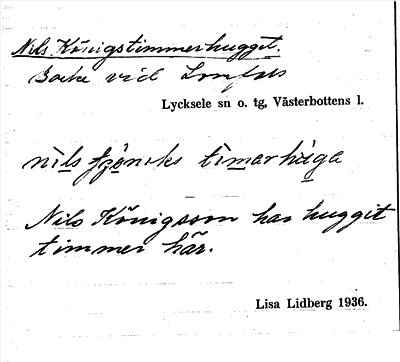 Nils Königstimmerhugget.
Backe vid
Lycksele sn o. tg, Västerbottens l.
nils timarhúga
Nils Königsson har huggit
timmer här.
Lisa Lidberg 1936.